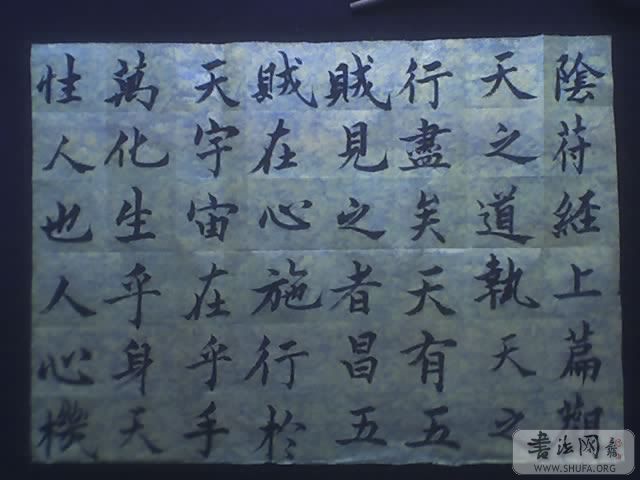 陰苻經上篇觀
天之道執天之
行盡矣天有五
賊見之者昌五
賊在心施行於
天宇宙在乎手
萬化生乎身天
性人也人心機
書法网
WWW.SHUFA.ORG